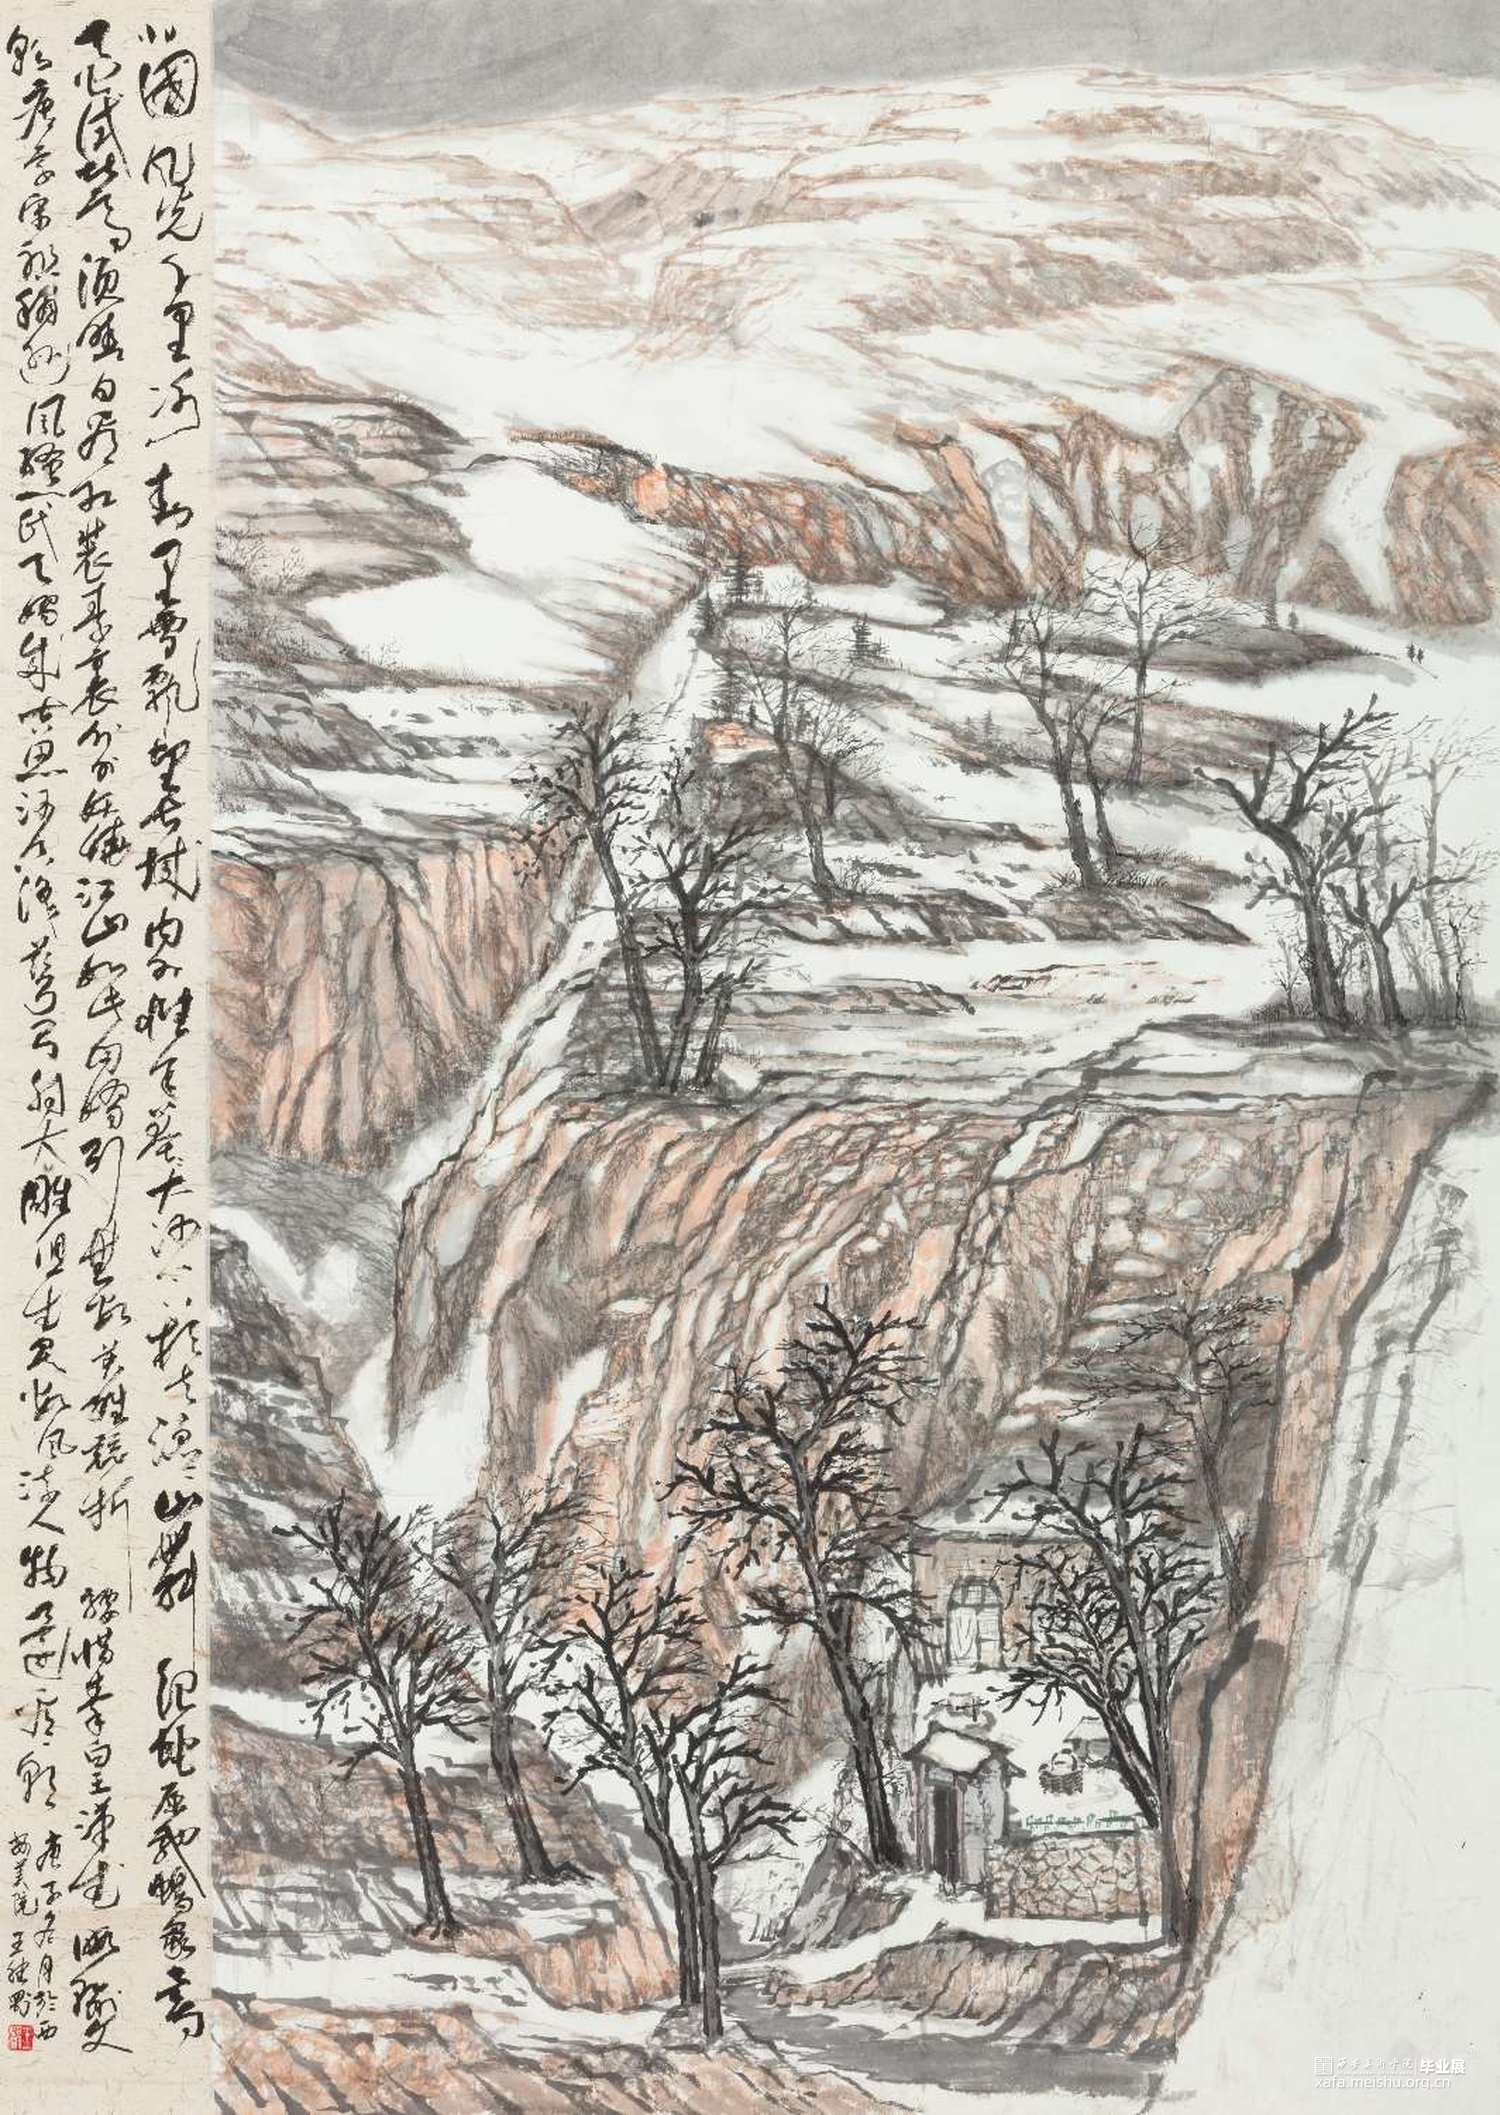 北國风光千里冰封万里雪飘望长城内外惟余莽莽大河上下顿失滔滔山舞银蛇原驰蜡象欲与
天公试比高须晴日看红装素裹分外妖娆江山如此多娇引無数英雄竞折腰惜秦皇漢武略输文
彩唐宗宋祖稍逊风骚一代天骄成吉思汗只识弯弓射大雕俱往矣数风流人物还看今朝
庚子冬月於西
安美院王
西安美术学院 毕业展
xafa.meishu.org.cn